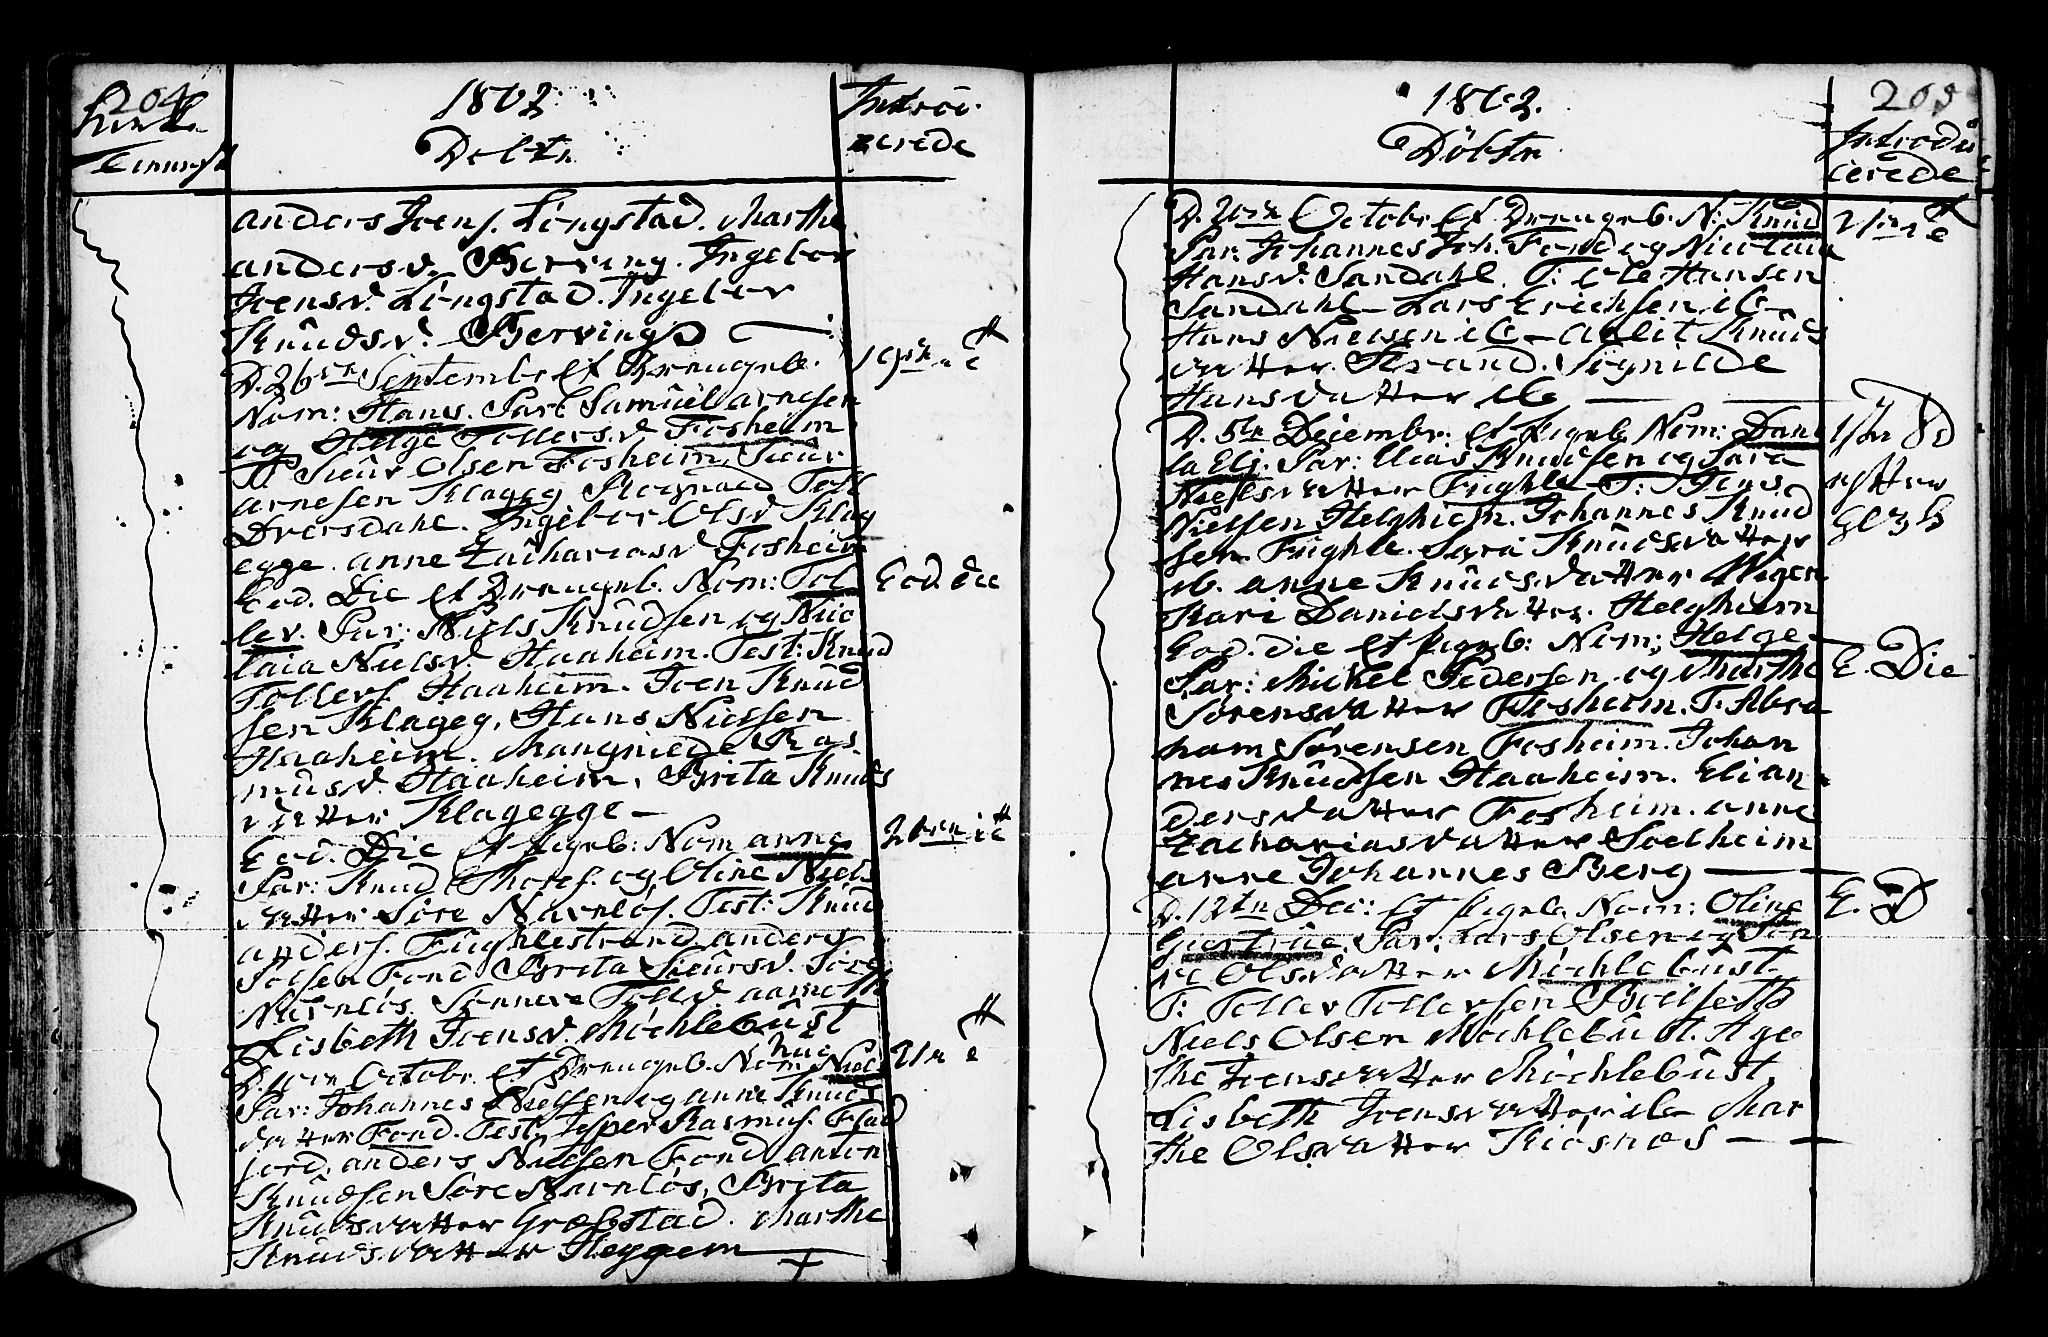 204
1802
Introdu
cerede
anders Joens. Lingstad. Marthe
andersd. Berving. Ingebor
Joensd. Lingstad. Ingebor
Knudsd. Berving
D. 26de Septembr et Drengeb.
Nom: Hans. Par: Samuel arnesen
og Helge Tollersd. Fosheim
T. Siur Olsen Fosheim, Siur
arnesen Klageg
Dversdahl. Ingebor Olsd. Klag
egge. anne Zachariasd. Fosheim
Eod. Die et Drengeb. Nom: Tol
Eod. die
lev. Par: Niels Knudsen og Nico
laia Nielsd. Haaheim. Test: Knud
Tollers. Haaheim. Joen Knud
sen Klageg, Hans Nielsen
Haaheim. Mangniede Ras
musd. Haaheim, Brita Knuds
datter Klagegge –
Eod. Die et Pigeb: Nom anne
Par: Knud Thoses. og Oline Niels
datter Søre Navnløs. Test: Knud
anders. Fughlestrand anders
Fond Brita Siursd. Søre
Navnløs
Lisbeth Joensd. Michlebust
D. 10de Octobr. et Drengeb. Nom Niels
Par: Johannes Nielsen og anne Knuds
datter Fond. Test. Jesper Rasmus.
fiord, anders Nielsen Fond anton
Knudsen Søre Navnløs, Brita
Knudsdatter Græfstad. Marthe
Knudsdatter Heggem
1802.
Döbte
205
Introdu
cerede
D. 20de Octobr. et Drengeb. N: Knud
Par: Johannes Joh. Fond og Nicolaia
Hansd. Sandahl. T: Ole Hansen
Sandahl – Lars Erichsen ib –
Hans Nielsen ib – Knuds
datter Strand. Signilde
Hansdatter ib –
D. 5te Decembr. et Pigeb. Nom: Dani
la Eli. Par: Elias Knudsen og Sara
Nielsdatter Fughle – T:
Nielsen Helghiem. Johannes Knud
sen Fughle. Sara Knudsdatter
ib. anne Knudsdatter
Kari Danielsdatter. Helghiem
Eod. die et Pigeb: Nom: Helge
E. Die
Par: Michel Pedersen og Marthe
Sørensdatter Fosheim. T: Abra
ham Sørensen Fosheim. Johan
nes Knudsen Haaheim. Eli an
dersdatter Fosheim. anne
Zachariasdatter Solheim
anne Johannes Berg –
D. 12te Dec: et Pigeb. Nom: Oline
E. D
Giertrue. Par: Lars Olsen og Sin
ne Olsdatter Michlebust
T: Toller Tollersen
Niels Olsen Michlebust. Age
the Joensdatter Michlebust
Lisbeth Joensdatter ib – Mar
the Olsdatter Kiøsnes –